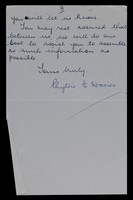 3
you will let us know.
You may rest assured that
between us, we will do our
best to assist you to assemble
as much information as
possible.
Yours truly,
Phyllis E. Davies